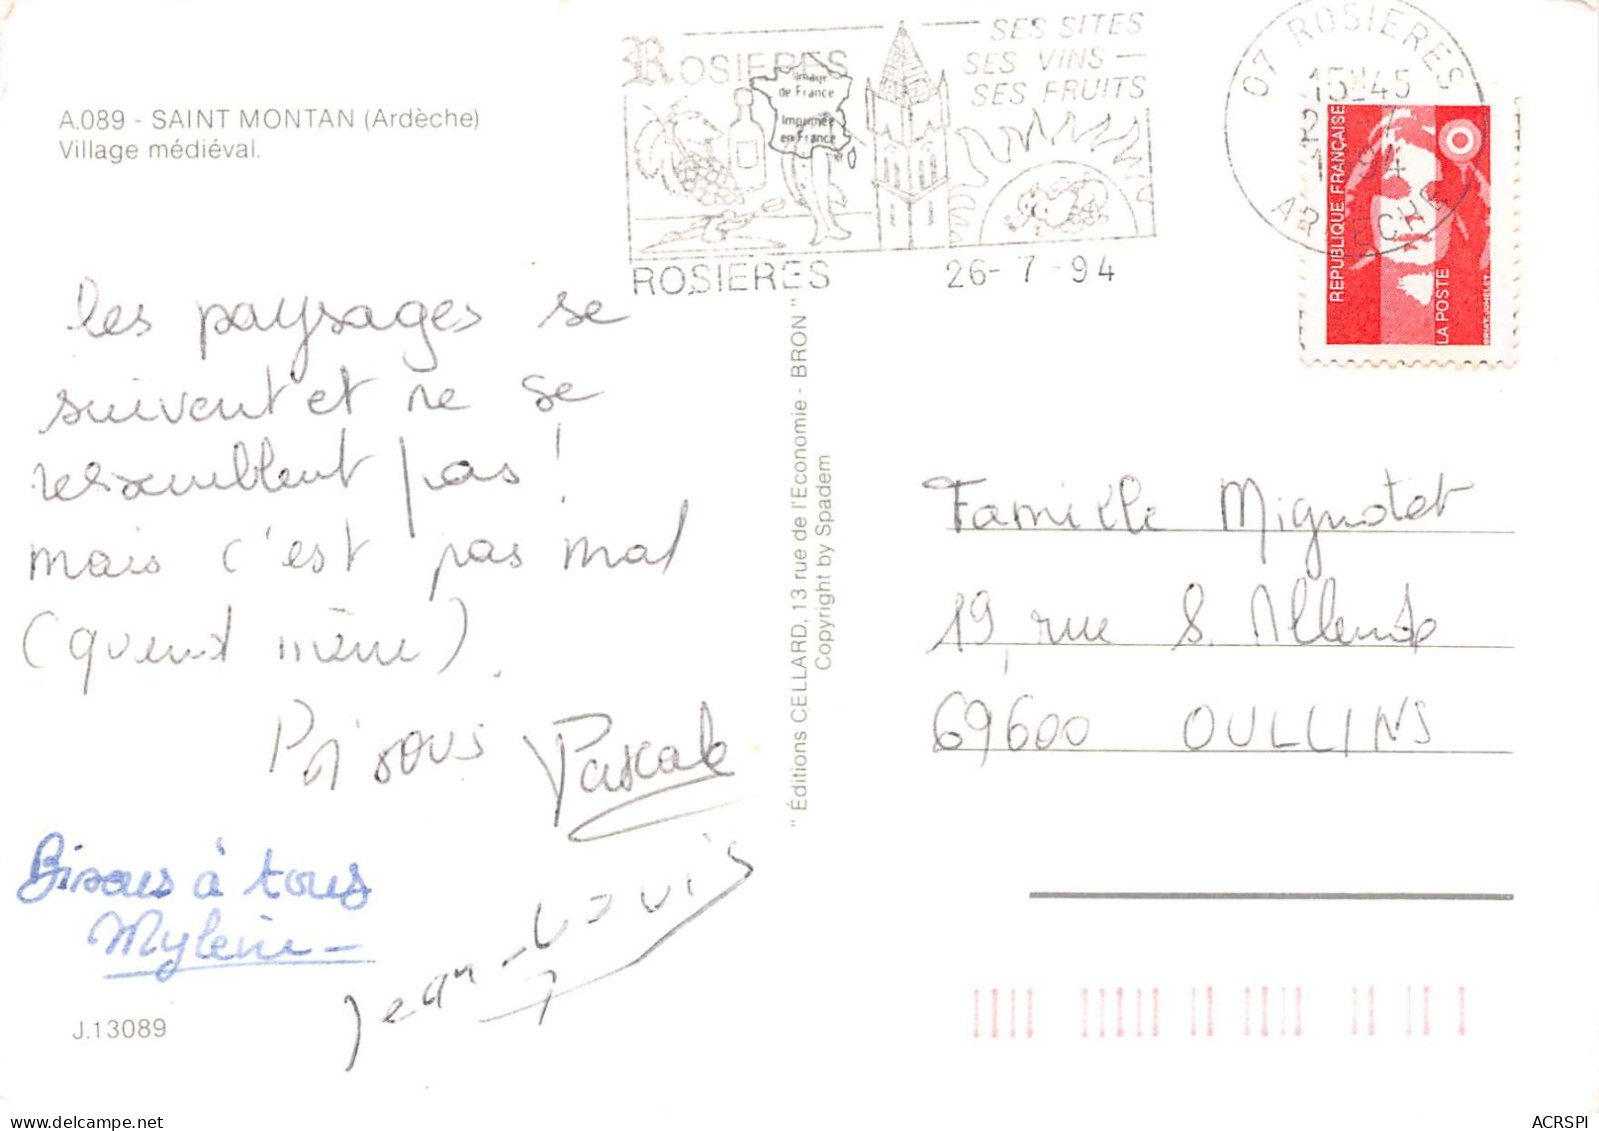 A.089 - SAINT MONTAN (Ardèche)
Village médiéval.
ROSIERES
Image
de France
Imprimée
en France
SES SITES
SES VINS
SES FRUITS
ROSIERES
26-7-94
07 ROSIERES
15H45
ARDECHE
REPUBLIQUE FRANÇAISE
LA POSTE
BRIAT-JUMELET
les paysages se
suivent et ne se
ressemblent pas!
mais c'est pas mal
(quand même).
Bisous Pascale
Bisous à tous
Mylène
Jean-Louis
J.13089
" Éditions CELLARD, 13 rue de l'Economie - BRON "
Copyright by Spadem
Famille Mignotet
19, rue S. Allende
69600 OULLINS
delcampe.net
ACRSPI